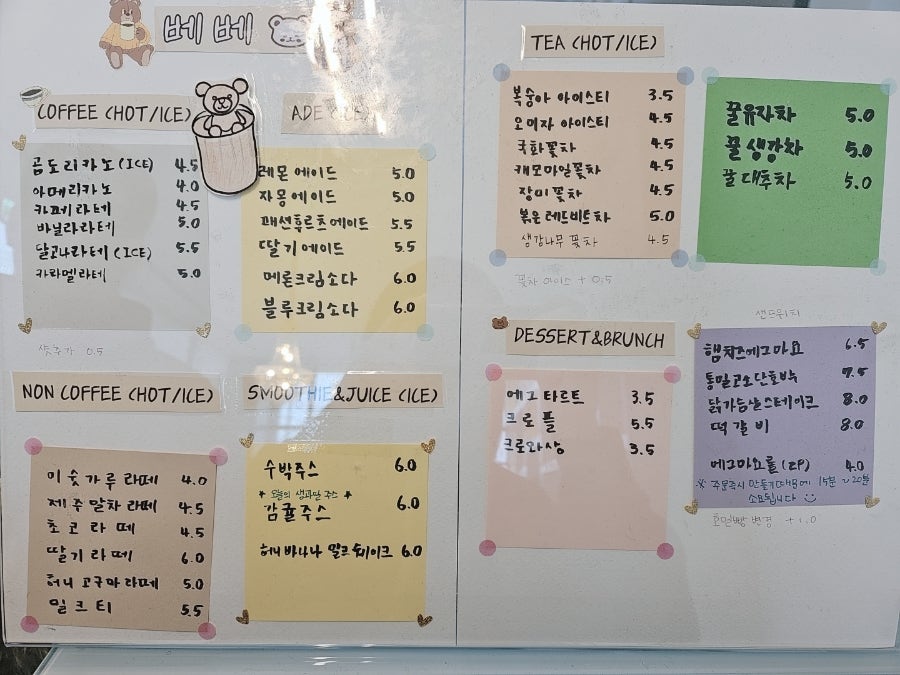 베베
COFFEE (HOT/ICE)
곰도리카노 (ICE) 4.5
아메리카노 4.0
카페라떼 4.5
바닐라라떼 5.0
달고나라떼 (ICE) 5.5
카라멜라떼 5.0
샷추가 0.5
ADE (ICE)
레몬에이드 5.0
자몽에이드 5.0
패션후르츠에이드 5.5
딸기에이드 5.5
메론크림소다 6.0
블루크림소다 6.0
NON COFFEE (HOT/ICE)
이숫가루라떼 4.0
제주말차라떼 4.5
초코라떼 4.5
딸기라떼 6.0
허니고구마라떼 5.0
밀크티 5.5
SMOOTHIE&JUICE (ICE)
수박주스 6.0
오늘의 생과일 주스
감귤주스 6.0
허니바나나 밀크쉐이크 6.0
TEA (HOT/ICE)
복숭아 아이스티 3.5
오미자 아이스티 4.5
국화꽃차 4.5
캐모마일꽃차 4.5
장미꽃차 4.5
볶은레드비트차 5.0
생강나무꽃차 4.5
꽃차 아이스 +0.5
꿀유자차 5.0
꿀생강차 5.0
꿀대추차 5.0
DESSERT&BRUNCH
에그타르트 3.5
크로플 5.5
크로와상 3.5
샌드위치
햄치즈에그마요 6.5
통밀고소단호박 7.5
닭가슴살스테이크 8.0
떡갈비 8.0
에그마요롤 (2P) 4.0
※ 주문즉시 만들기때문에 15분~20분
소요됩니다
호밀빵 변경 +1.0